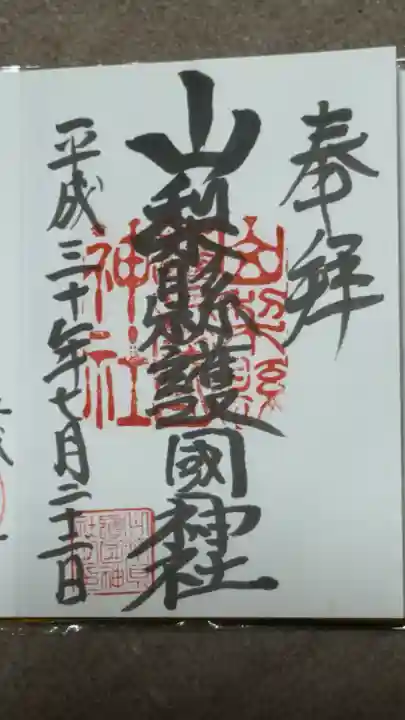 奉拜
山梨縣護國神社
平成三十年七月二十二日
山梨縣護國神社